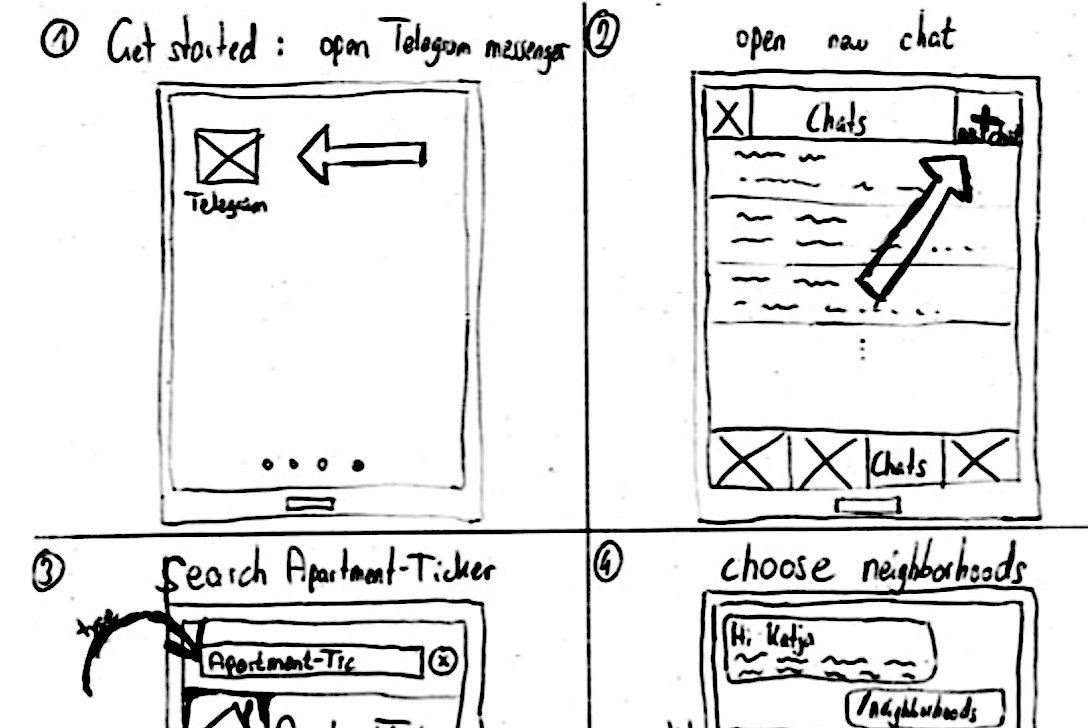 1 Get started : open Telegram messenger
Telegram
2 open new chat
Chats
+
Chats
3 Search Apartment-Ticker
Apartment-Tic x
4 choose neighborhoods
Hi Katja
/neighborhoods